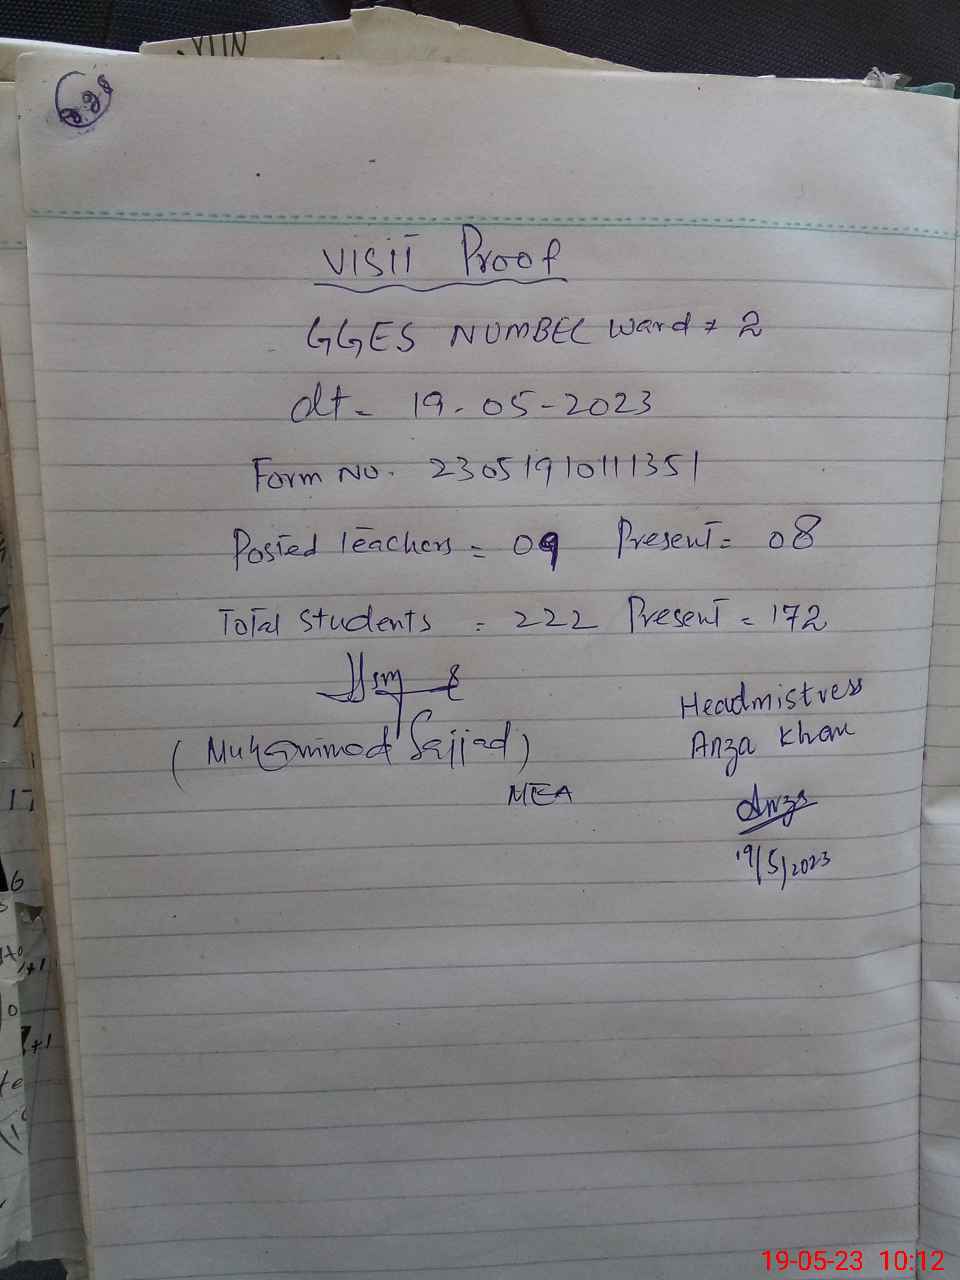 VISIT Proof
GGES NUMBER ward # 2
dt- 19-05-2023
Form No. 230519101111351
Posted Teachers = 09 Present = 08
Total Students = 222 Present = 172
(Muhammad Sajjad)
MEA
Headmistress
Anza Khan
Anza
19/5/2023
19-05-23 10:12